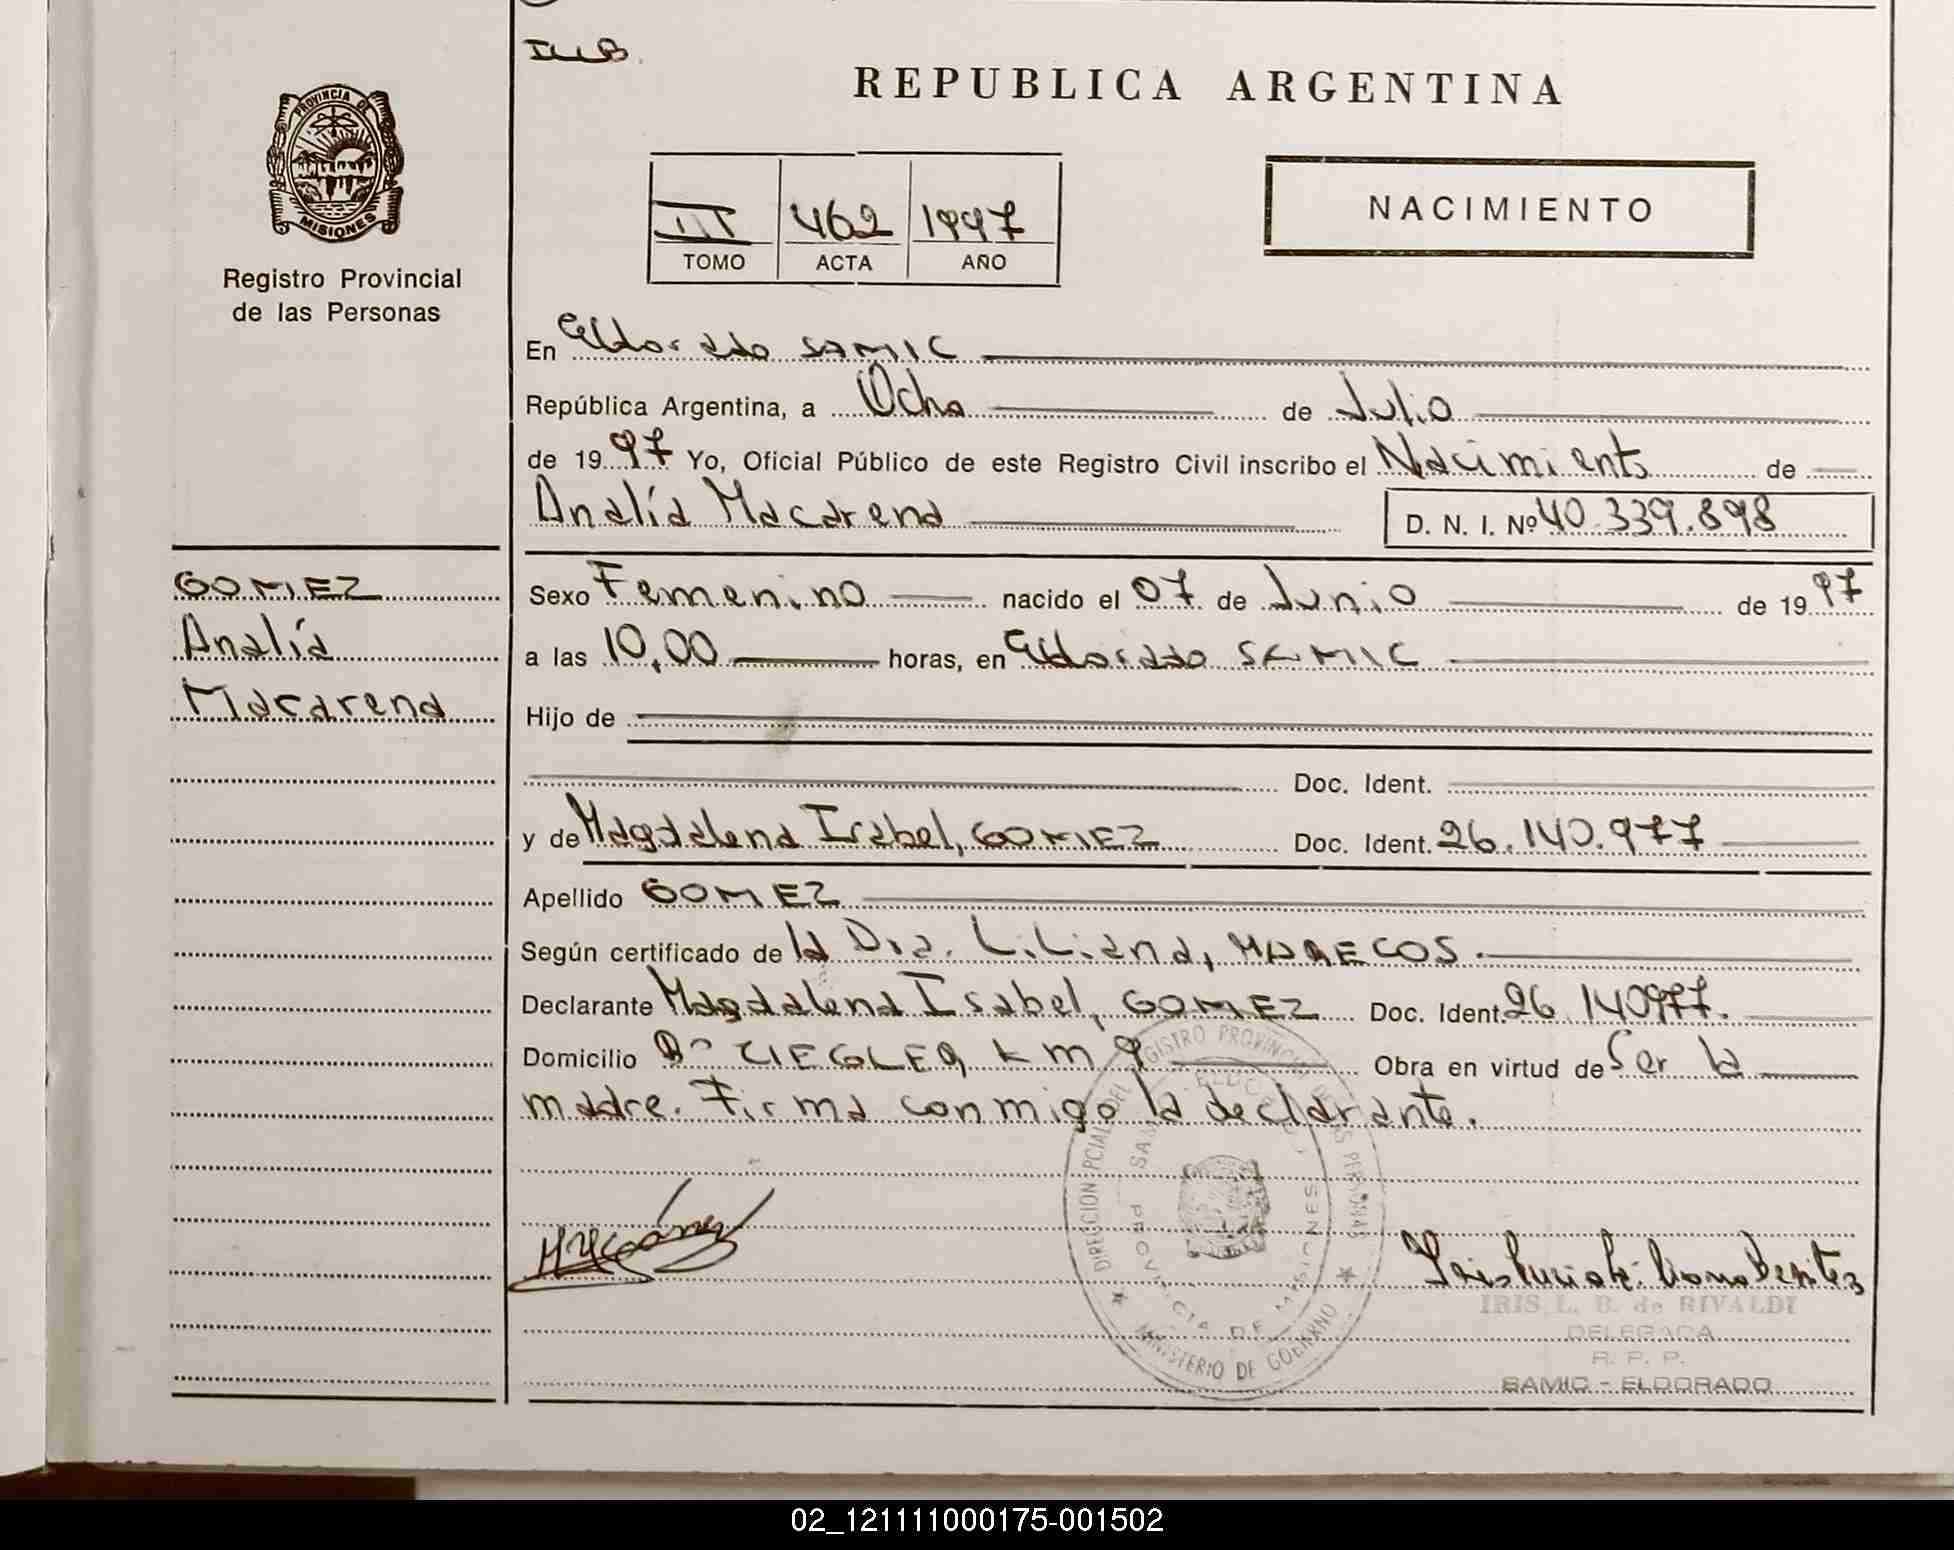 ILLB.
REPUBLICA ARGENTINA
PROVINCIA DE
MISIONES
Registro Provincial
de las Personas
III 462 1997
TOMO ACTA AÑO
NACIMIENTO
En Eldorado SAMIC
República Argentina, a Ocho de Julio
de 1997 Yo, Oficial Público de este Registro Civil inscribo el Nacimiento de
Analía Macarena D. N. I. Nº 40.339.898
GOMEZ
Analía
Macarena
Sexo Femenino nacido el 07 de Junio de 1997
a las 10,00 horas, en Eldorado SAMIC
Hijo de
Doc. Ident.
y de Magdalena Isabel, GOMEZ Doc. Ident. 26.140.977
Apellido GOMEZ
Según certificado de la Dra. Liliana, MARECOS.
Declarante Magdalena Isabel, GOMEZ Doc. Ident. 26.140977.
Domicilio Bº ZIEGLER, km 9 Obra en virtud de Ser la
madre. Firma conmigo la declarante.
DIRECCION PCIAL. DEL REGISTRO PROVINCIAL DE LAS PERSONAS
MINISTERIO DE GOBIERNO
PROVINCIA DE MISIONES
IRIS L. B. de RIVALDI
DELEGADA
R. P. P.
SAMIC - ELDORADO
02_121111000175-001502